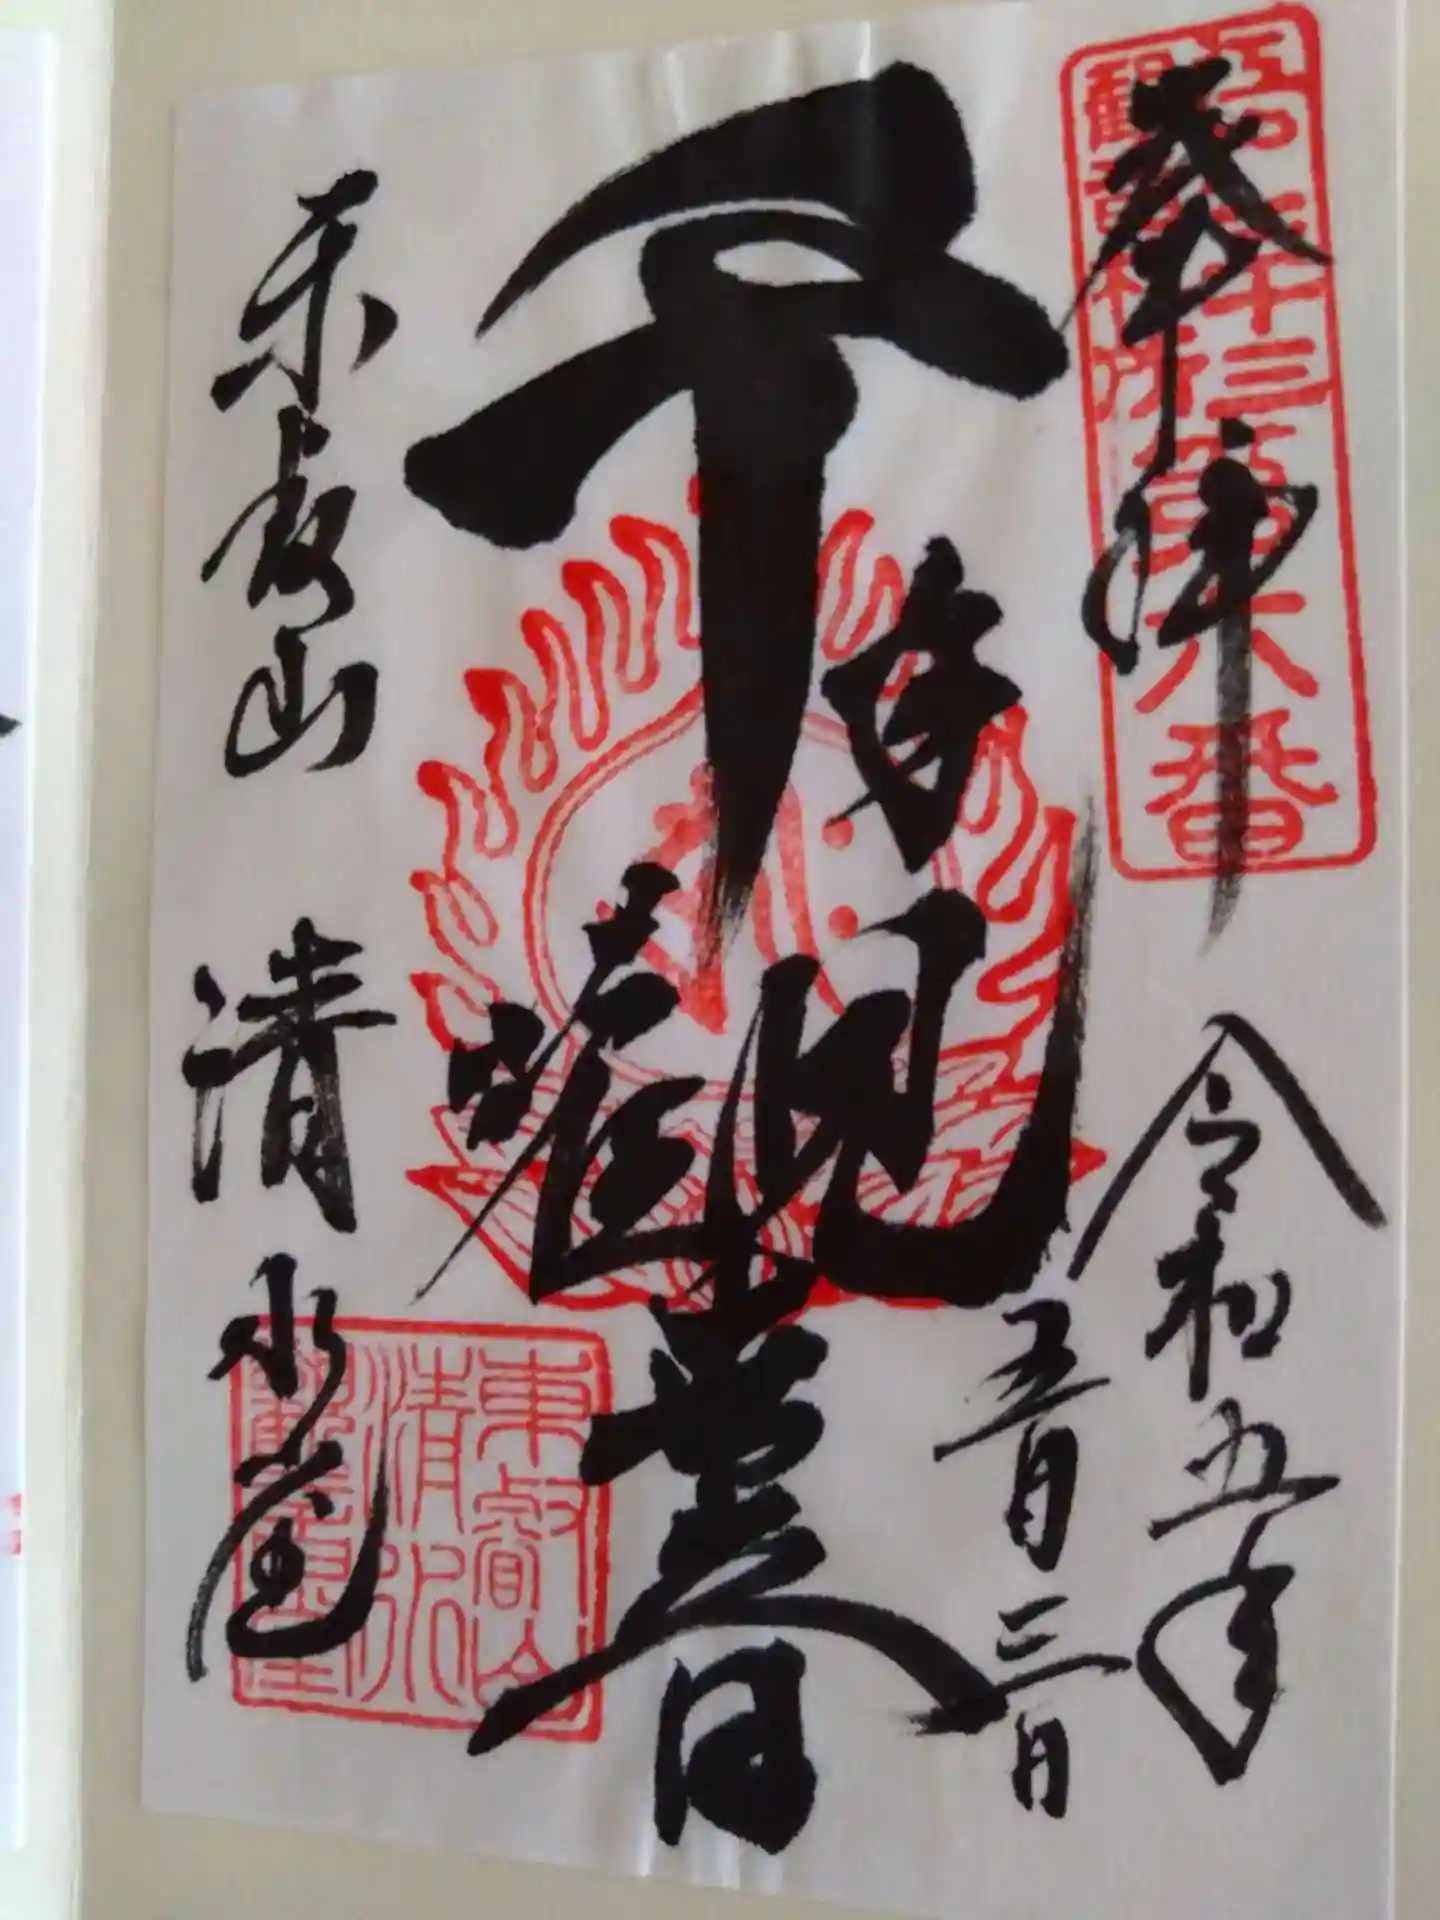 奉拝
令和五年
五月三日
千手観世音
東叡山
清水堂
昭和三十三番六番
観音札所
東叡山
清水
観音堂